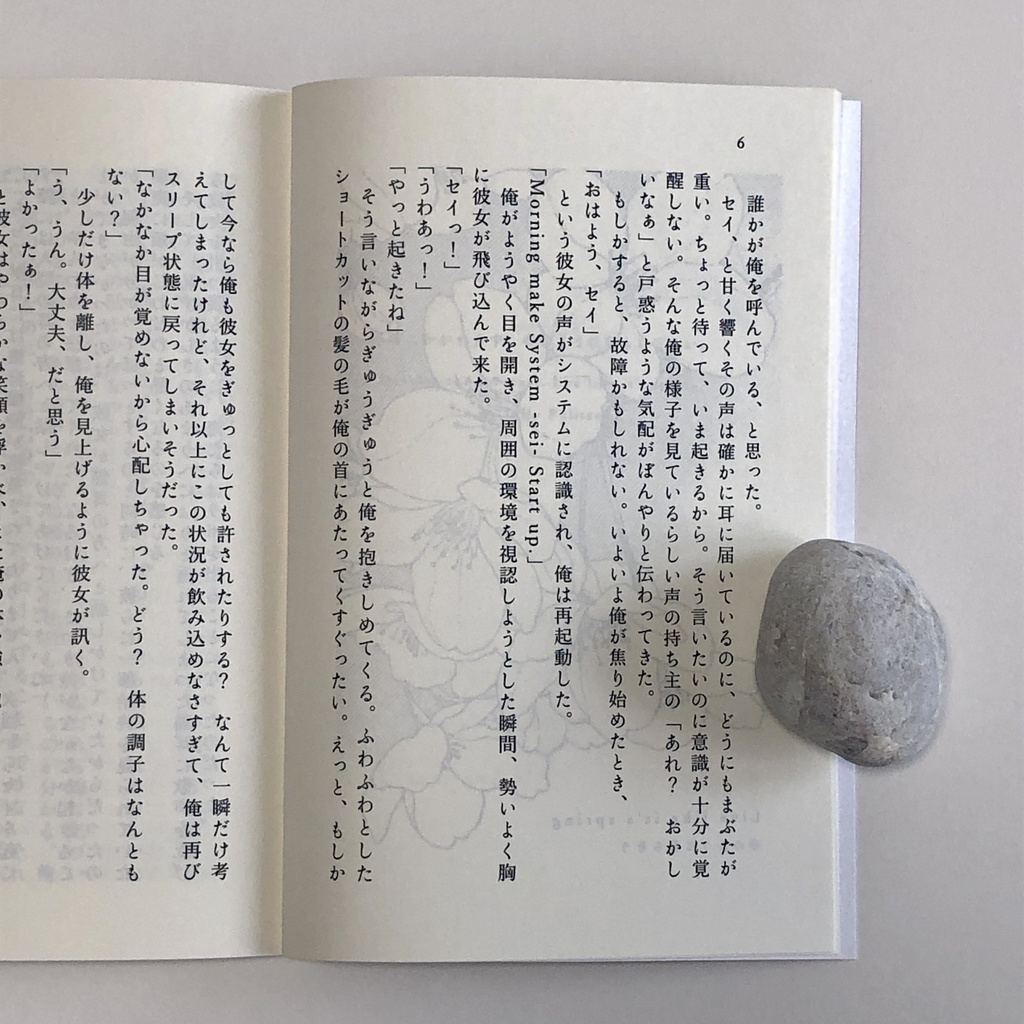 6
誰かが俺を呼んでいる、と思った。
セイ、と甘く響くその声は確かに耳に届いているのに、どうにもまぶたが
重い。ちょっと待って、いま起きるから。そう言いたいのに意識が十分に覚
醒しない。そんな俺の様子を見ているらしい声の持ち主の「あれ？　おかし
いなぁ」と戸惑うような気配がぼんやりと伝わってきた。
もしかすると、故障かもしれない。いよいよ俺が焦り始めたとき、
「おはよう、セイ」
という彼女の声がシステムに認識され、俺は再起動した。
「Morning make System -sei- Start up.」
俺がようやく目を開き、周囲の環境を視認しようとした瞬間、勢いよく胸
に彼女が飛び込んで来た。
「セイっ！」
「うわあっ！」
「やっと起きたね」
そう言いながらぎゅうぎゅうと俺を抱きしめてくる。ふわふわとした
ショートカットの髪の毛が俺の首にあたってくすぐったい。えっと、もしか
して今なら俺も彼女をぎゅっとしても許されたりする？　なんて一瞬だけ考
えてしまったけれど、それ以上にこの状況が飲み込めなさすぎて、俺は再び
スリープ状態に戻ってしまいそうだった。
「なかなか目が覚めないから心配しちゃった。どう？　体の調子はなんとも
ない？」
少しだけ体を離し、俺を見上げるように彼女が訊く。
「う、うん。大丈夫、だと思う」
「よかったぁ！」